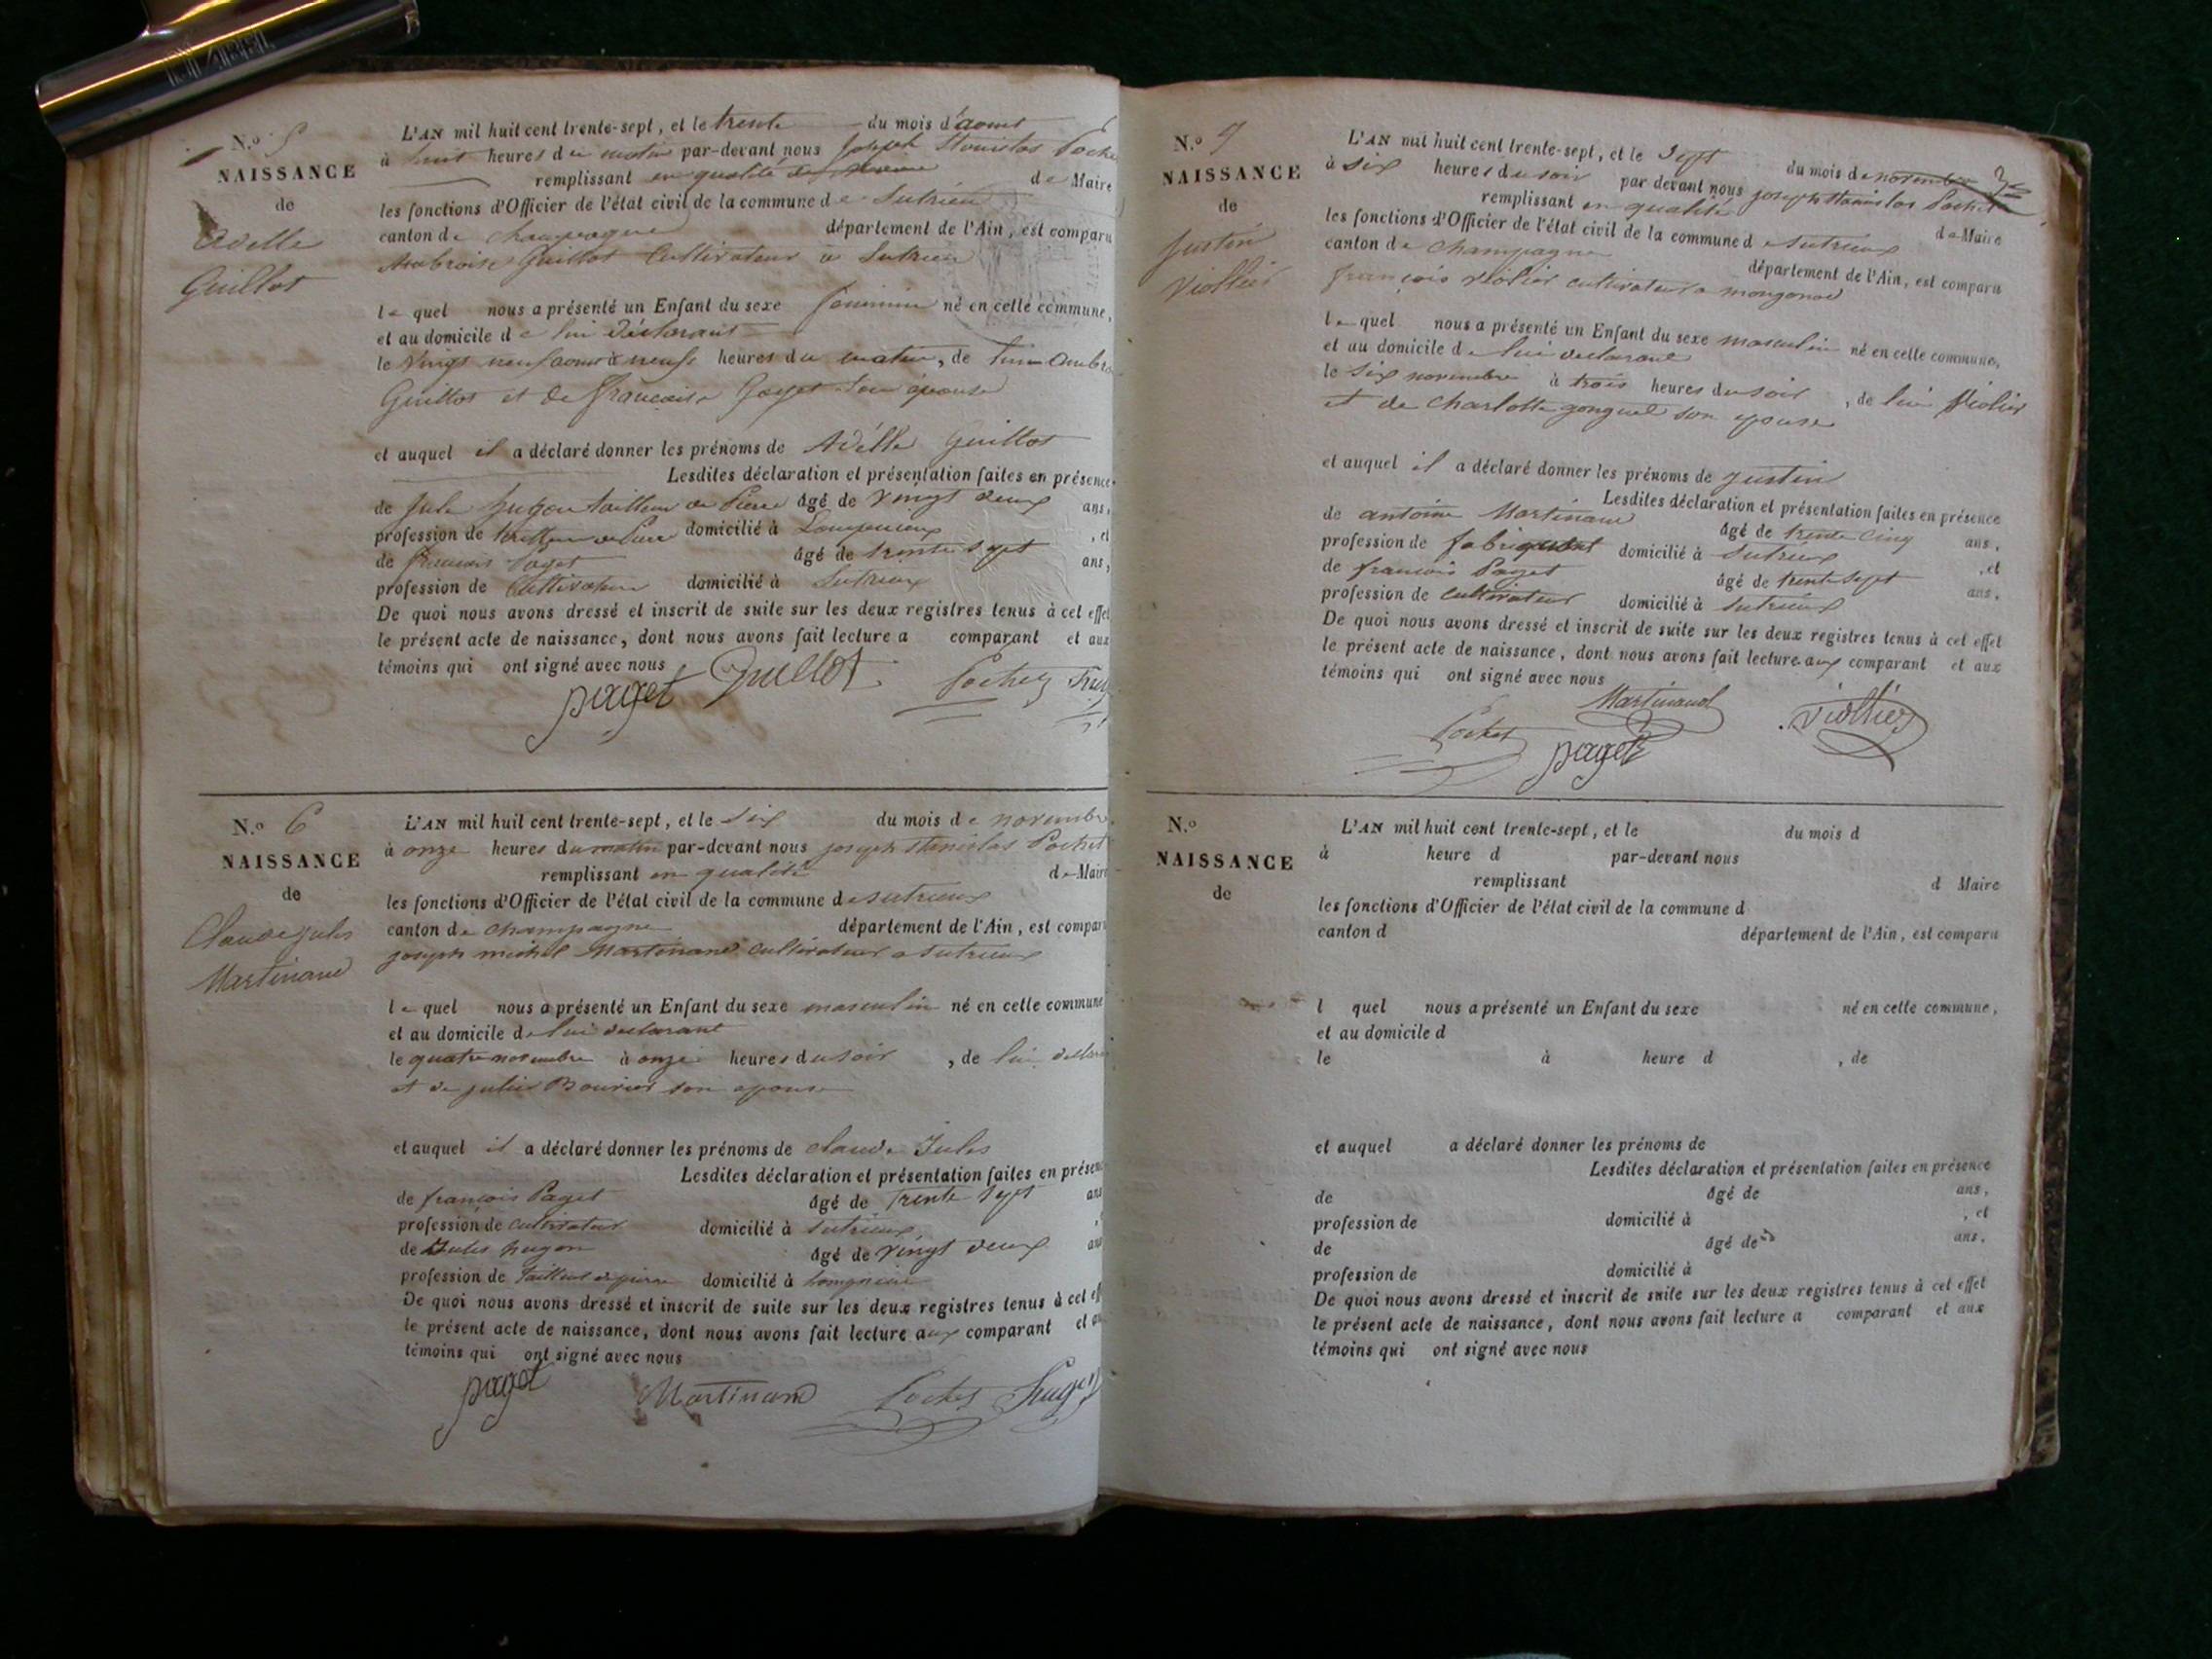 N.o 5
NAISSANCE
de
Adelle
Guillot
L'AN mil huit cent trente-sept, et le trente du mois d'aout
à huit heures du matin par-devant nous Joseph Stanislas Poche
remplissant en qualité de Maire
les fonctions d'Officier de l'état civil de la commune de Sutrieu
canton de Champagne département de l'Ain, est comparu
Ambroise Guillot Cultivateur a Sutrieu
le quel nous a présenté un Enfant du sexe feminin né en cette commune,
et au domicile de lui déclarant
le vingt neuf aout à neuf heures du matin, de lui Ambro
Guillot et de françoise Goyet son épouse
et auquel il a déclaré donner les prénoms de Adélle Guillot
Lesdites déclaration et présentation faites en présence
de Jule hugon tailleur de Pierre âgé de vingt deux ans,
profession de tailleur de Pierre domicilié à , et
de françois Paget âgé de trente sept ans,
profession de Cultivateur domicilié à Sutrieux
De quoi nous avons dressé et inscrit de suite sur les deux registres tenus à cet effet
le présent acte de naissance, dont nous avons fait lecture a comparant et aux
témoins qui ont signé avec nous
paget Guillot Pochet
N.o 6
NAISSANCE
de
Claude jules
Martinand
L'AN mil huit cent trente-sept, et le six du mois de novembre
à onze heures du matin par-devant nous joseph stanislas Pochet
remplissant en qualité de Maire
les fonctions d'Officier de l'état civil de la commune de sutrieux
canton de champagne département de l'Ain, est compar
joseph michel Martinand cultivateur a sutrieux
le quel nous a présenté un Enfant du sexe masculin né en cette commune
et au domicile de lui declarant
le quatre novembre à onze heures du soir, de lui declar
et de julie Bourier son epouse
et auquel il a déclaré donner les prénoms de claude Jules
Lesdites déclaration et présentation faites en présen
de françois Paget âgé de trente sept ans
profession de cultivateur domicilié à sutrieux,
de Jules hugon âgé de vingt deux ans
profession de tailleur de pierre domicilié à
De quoi nous avons dressé et inscrit de suite sur les deux registres tenus à cet eff
le présent acte de naissance, dont nous avons fait lecture aux comparant et au
témoins qui ont signé avec nous
paget Martinand Pochet hugon
N.o 7
NAISSANCE
de
Justin
Viollier
L'AN mil huit cent trente-sept, et le sept du mois de novembre
à six heures du soir par devant nous joseph stanislas Pochet
remplissant en qualité de Maire
les fonctions d'Officier de l'état civil de la commune de sutrieux
canton de champagne département de l'Ain, est comparu
françois violier cultivateur a mongonod
le quel nous a présenté un Enfant du sexe masculin né en cette commune,
et au domicile de lui declarant
le six novembre à trois heures du soir, de lui Violier
et de Charlotte gonguel son epouse
et auquel il a déclaré donner les prénoms de justin
Lesdites déclaration et présentation faites en présence
de antoine Martinand âgé de trente cinq ans,
profession de fabriquant domicilié à sutrieux, et
de francois Paget âgé de trente sept ans,
profession de cultivateur domicilié à sutrieux
De quoi nous avons dressé et inscrit de suite sur les deux registres tenus à cet effet
le présent acte de naissance, dont nous avons fait lecture aux comparant et aux
témoins qui ont signé avec nous
Martinand viollier
Pochet paget
N.o
NAISSANCE
de
L'AN mil huit cent trente-sept, et le du mois d
à heure d par-devant nous
remplissant d Maire
les fonctions d'Officier de l'état civil de la commune d
canton d département de l'Ain, est comparu
l quel nous a présenté un Enfant du sexe né en cette commune,
et au domicile d
le à heure d , de
et auquel a déclaré donner les prénoms de
Lesdites déclaration et présentation faites en présence
de âgé de ans,
profession de domicilié à , et
de âgé de ans,
profession de domicilié à
De quoi nous avons dressé et inscrit de suite sur les deux registres tenus à cet effet
le présent acte de naissance, dont nous avons fait lecture a comparant et aux
témoins qui ont signé avec nous